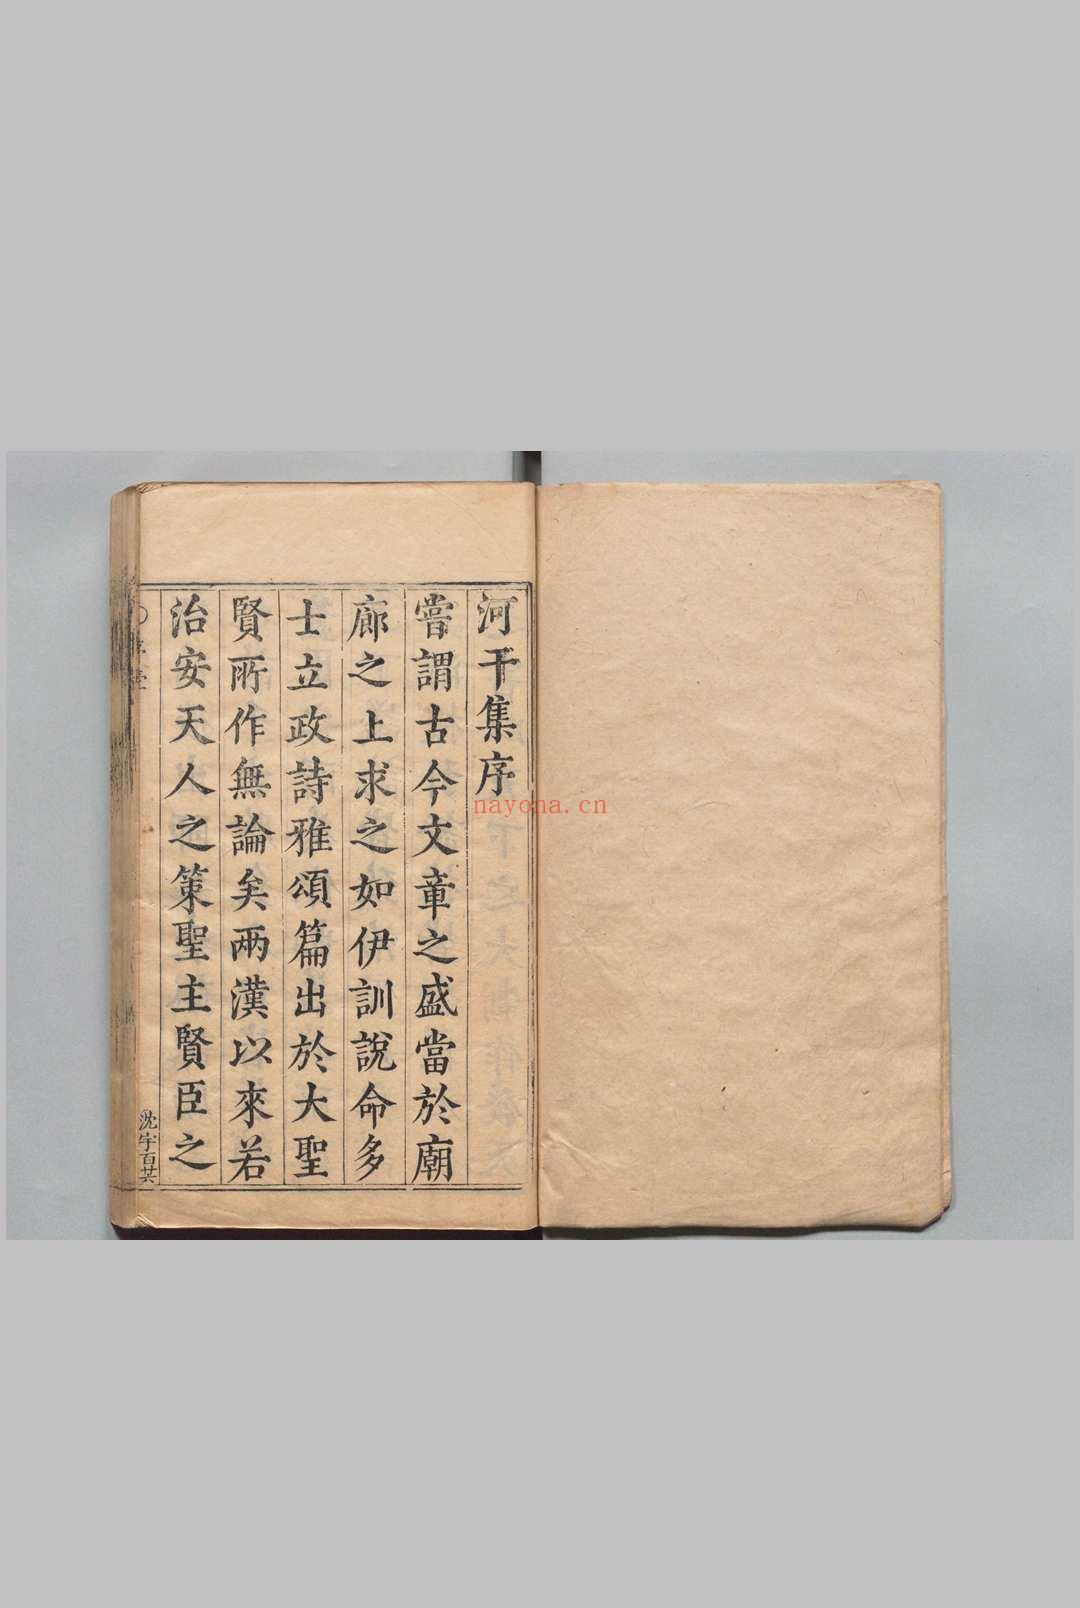 河干集序
嘗謂古今文章之盛當於廟
廊之上求之如伊訓說命多
士立政詩雅頌篇出於大聖
賢所作無論矣兩漢以來若
治安天人之策聖主賢臣之
沈宇百廿
nayona.cn